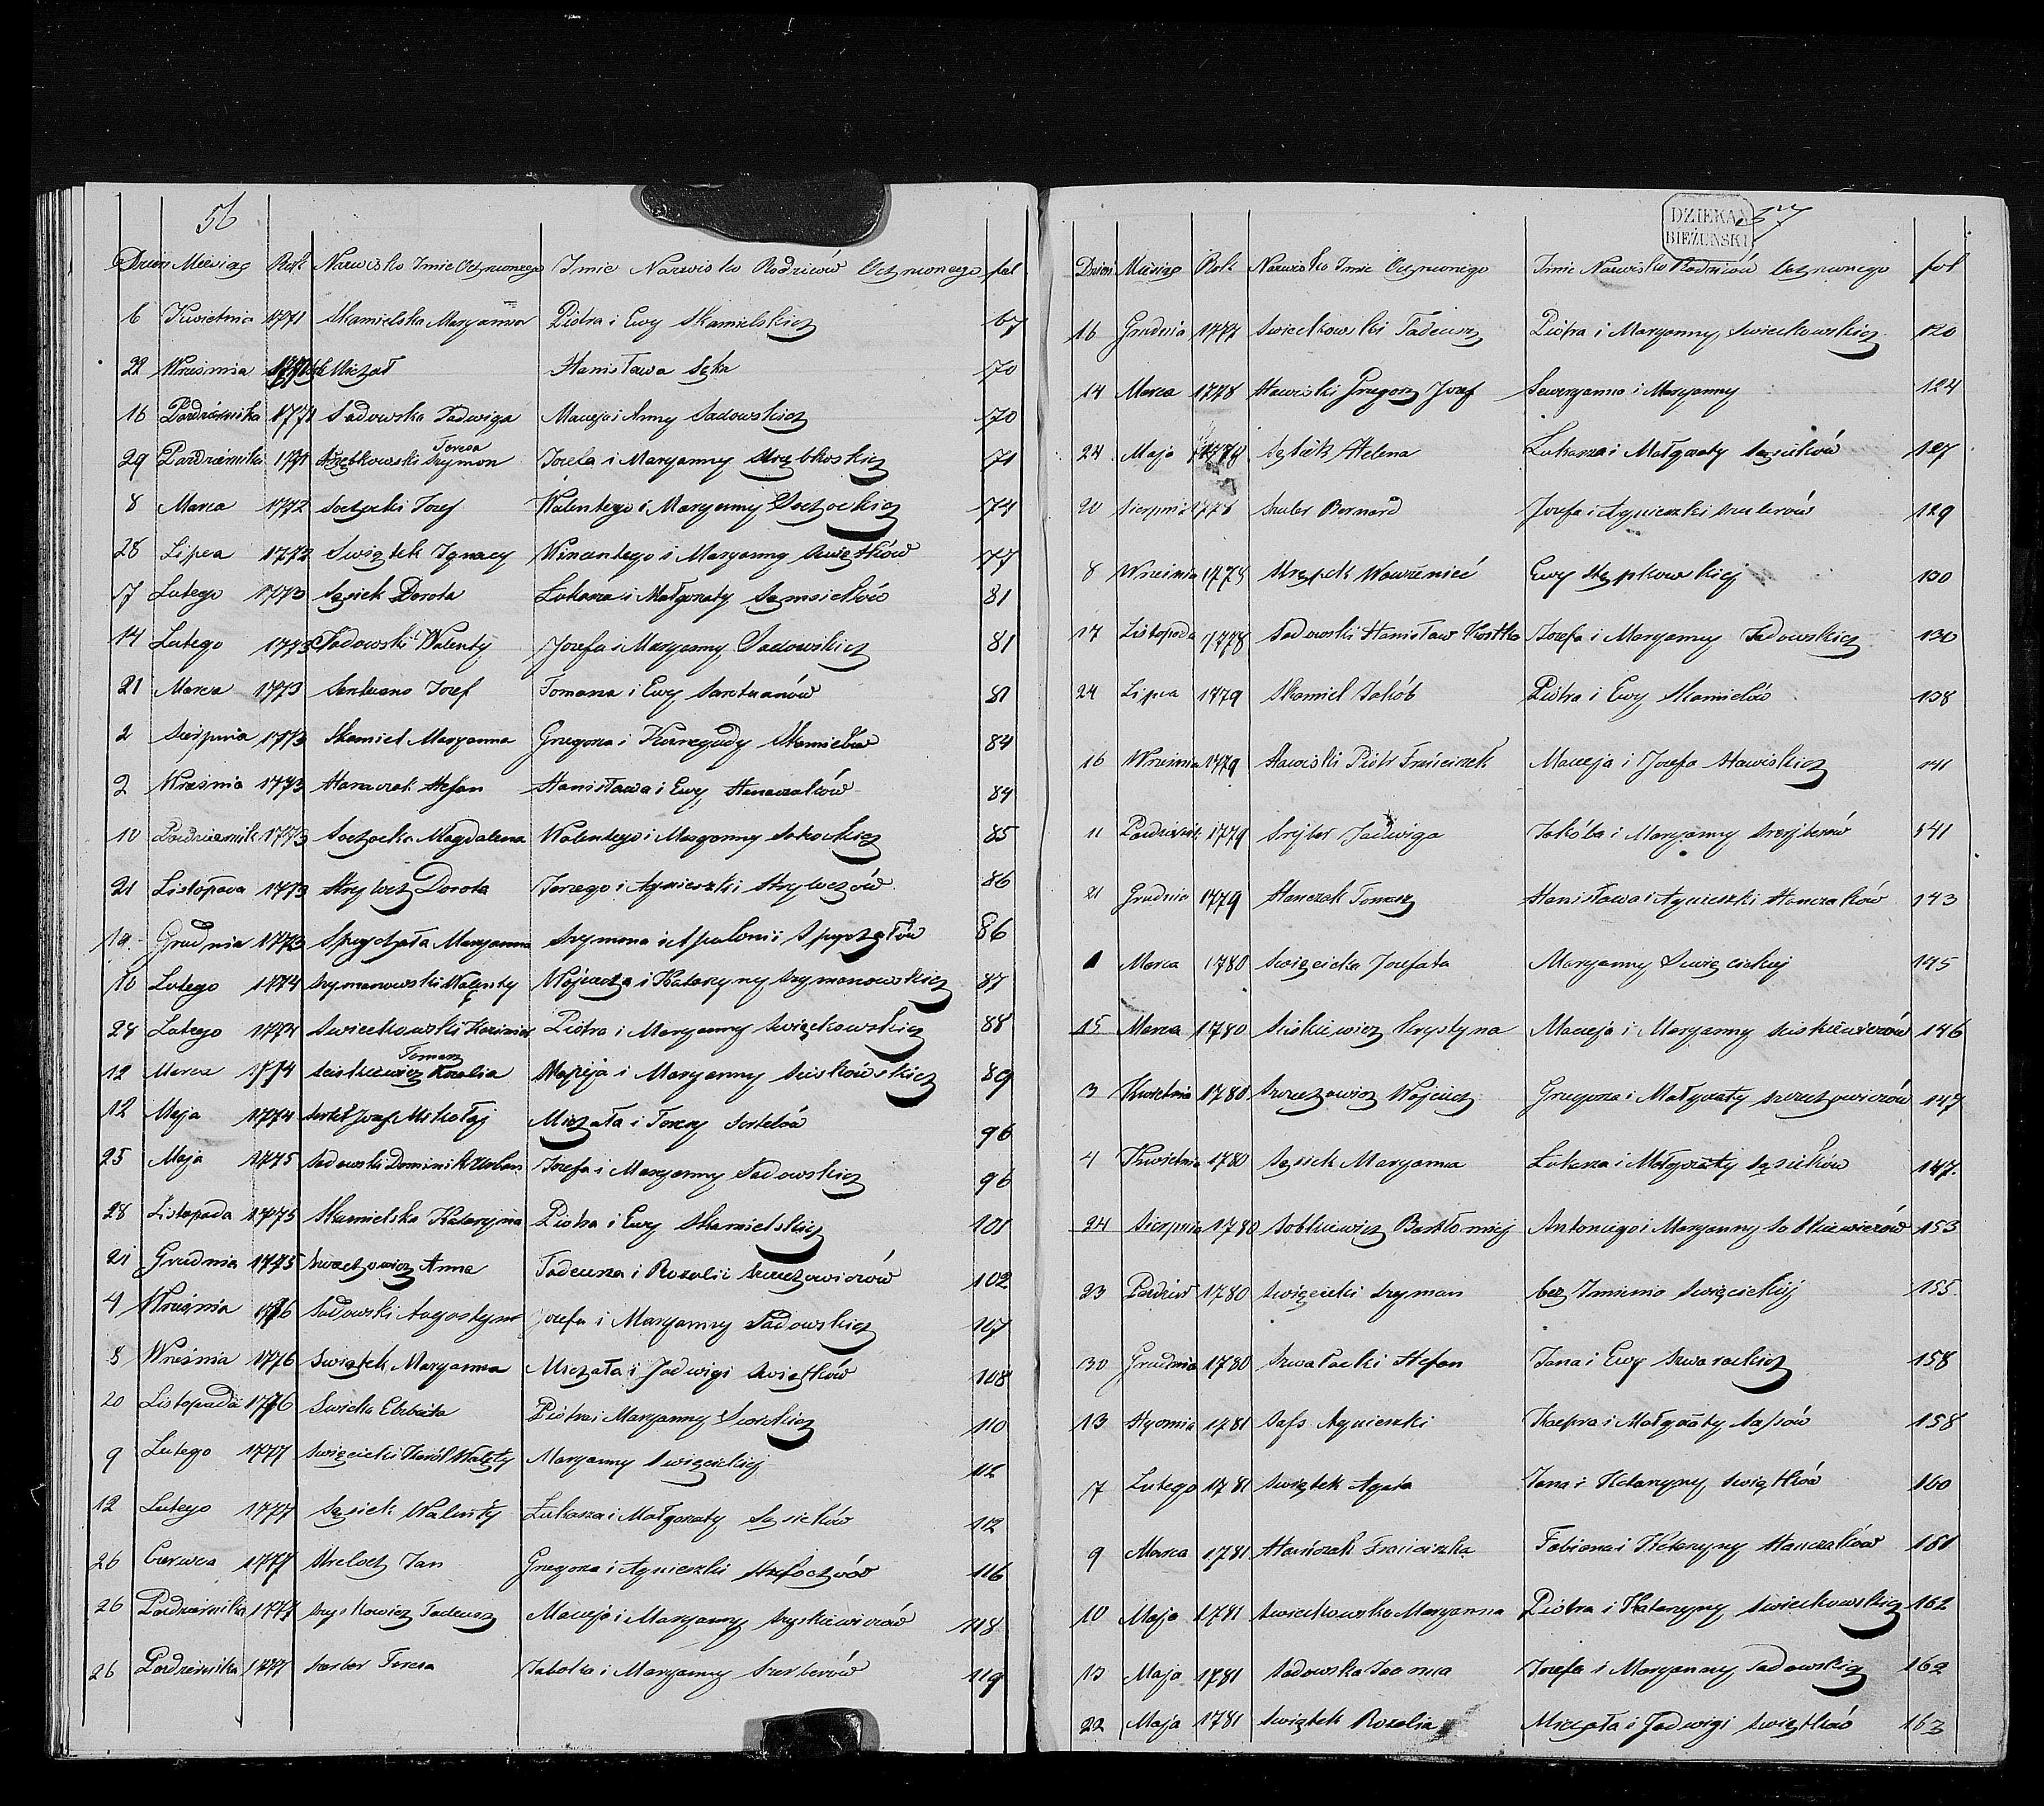 56
Dzień Miesiąc Rok Nazwisko Imie Ochrzconego Imie Nazwisko Rodziców Ochrzconego fol
6 Kwietnia 1771 Skamielska Maryanna Piotra i Ewy Skamielskich 67
22 Wrzesnia Michał Stanisława Sęka 70
16 Pazdziernika 1771 Sadowska Jadwiga Macieja i Anny Sadowskich 70
29 Pazdziernika 1771 Strzębkowski Szymon Teresa Jozefa i Maryanny Strząbkoskich 71
8 Marca 1772 Soczocki Jozef Walentego i Maryanny Soczockich 74
28 Lipca 1772 Swiątek Ignacy Wincentego i Maryanny Swiątków 77
17 Lutego 1773 Sąsiek Dorota Łukasza i Małgorzaty Sąmsieków 81
14 Lutego 1773 Sadowski Walenty Jozefa i Maryanny Sadowskich 81
21 Marca 1773 Jozef Tomasza i Ewy 81
2 Sierpnia 1773 Skamiel Maryanna Grzegorza i Kunegudy Skamielów 84
2 Wrzesnia 1773 Stanaczak Stefan Stanisława i Ewy Stanaczaków 84
10 Pazdziernik 1773 Soczocka Magdalena Walentego i Maryanny 85
21 Listopada 1773 Dorota Jerzego i Agnieszki 86
19 Grudnia 1773 Spychała Maryanna Szymona i Apolonii Spychałów 86
10 Lutego 1774 Szymanowski Walenty Wojciecha i Katarzyny Szymanowskich 87
28 Lutego 1774 Swieckowski Kazimierz Piotra i Maryanny Swięckowskich 88
12 Marca 1774 Sciskiewicz Rozalia Tomasz Macieja i Maryanny Sciskowskich 89
12 Maja 1774 Jozef Mikołaj Michała i Teresy 96
25 Maja 1775 Sadowski Dominik Urban Jozefa i Maryanny Sadowskich 96
28 Listopada 1775 Skamielska Katarzyna Piotra i Ewy Skamielskich 101
21 Grudnia 1775 Szwechowicz Anna Tadeusza i Rozalii Szwechowiczów 102
4 Wrzesnia 1776 Sadowski Augostyn Jozefa i Maryanny Sadowskich 107
8 Wrzesnia 1776 Swiątek Maryanna Michała i Jadwigi Swiątków 108
20 Listopada 1776 Swicka Elzbieta Piotra i Maryanny Swickich 110
9 Lutego 1777 Swięcicki Karól Walęty Maryanny Swięcickiej 112
12 Lutego 1777 Sąsiek Walenty Łukasza i Małgorzaty Sąsieków 112
26 Czerwca 1777 Streloch Jan Grzegorza i Agnieszki Strelochów 116
26 Pazdziernika 1777 Szyskowicz Tadeusz Macieja i Maryanny Szyskiewiczów 118
26 Pazdziernika 1777 Szerber Teresa Jakoba i Maryanny Szerberów 119
DZIEKAN
BIEŻUŃSKI
57
Dzień Miesiąc Rok Nazwisko Imie Ochrzconego Imie Nazwisko Rodziców Ochrzconego fol
16 Grudnia 1777 Swieckowski Tadeusz Piotra i Maryanny Swieckowskich 120
14 Marca 1778 Stawiski Grzegorz Jozef Seweryanna i Maryanny 124
24 Maja 1778 Sąsiek Helena Łukasza i Małgorzaty Sąsieków 127
20 Sierpnia 1778 Szuler Bernard Jozefa i Agnieszki Szulerów 129
8 Wrzesnia 1778 Strzępek Ewy Stępkowskiej 130
17 Listopada 1778 Sadowski Stanisław Kostka Jozefa i Maryanny Sadowskich 130
24 Lipca 1779 Skamiel Jakób Piotra i Ewy Skamielów 138
16 Wrzesnia 1779 Stawiski Piotr Franciszek Macieja i Jozefa Stawiskich 141
11 Pazdziernik 1779 Jadwiga Jakóba i Maryanny 141
21 Grudnia 1779 Stanczak Tomasz Stanisława i Agnieszki Stanczaków 143
1 Marca 1780 Swięcicka Jozefata Maryanny Swięcickiej 145
15 Marca 1780 Sciskiewicz Krystyna Macieja i Maryanny Sciskiewiczów 146
3 Kwietnia 1780 Szwechowicz Wojciech Grzegorza i Małgorzaty Szwechowiczów 147
4 Kwietnia 1780 Sąsiek Maryanna Łukasza i Małgorzaty Sąsieków 147.
24 Sierpnia 1780 Sobkiewicz Bartłomiej Antoniego i Maryanny Sobkiewiczów 153
23 Pazdzier 1780 Swięcicki Szyman bez Imienia Swięcickiej 155
30 Grudnia 1780 Szwaracki Stefan Jana i Ewy Szwarackich 158
13 Stycznia 1781 Safs Agnieszki Kacpra i Małgorzaty Safsów 158
7 Lutego 1781 Swiątek Agata Jana i Katarzyny Swiątków 160
9 Marca 1781 Stańczak Franciszka Fabiana i Katarzyny Stanczaków 161
10 Maja 1781 Swieckowska Maryanna Piotra i Katarzyny Swieckowskich 162
13 Maja 1781 Sadowska Joanna Jozefa i Maryanny Sadowskich 162
22 Maja 1781 Swiątek Rozalia Michała i Jadwigi Swiątków 163